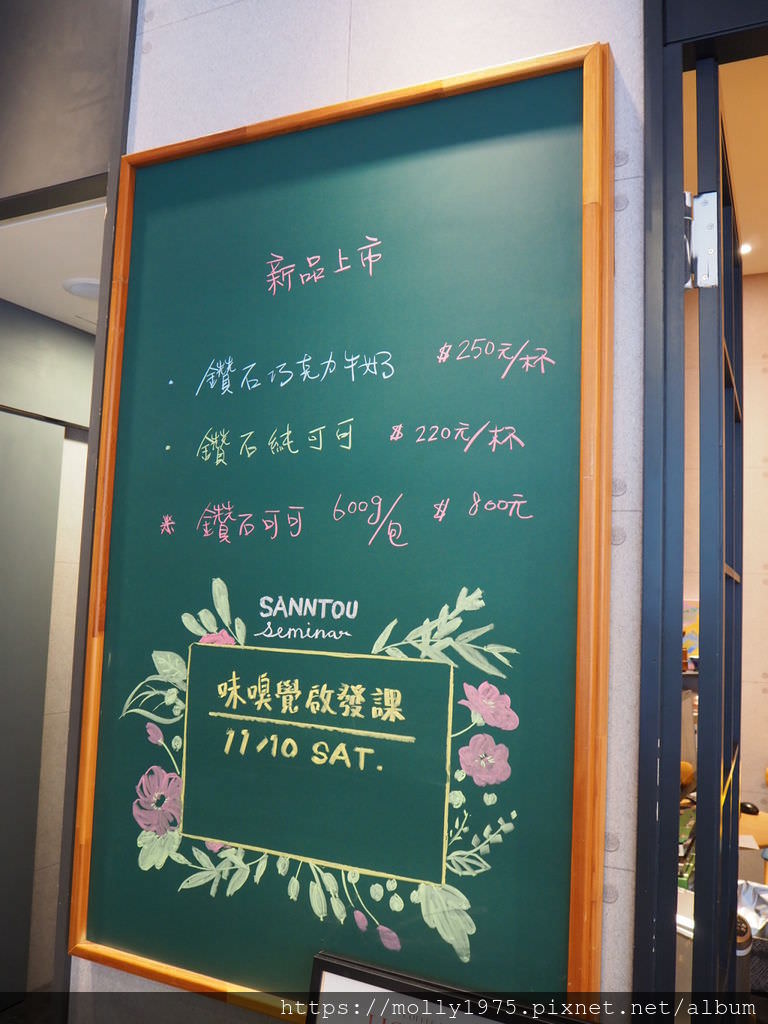 新品上市
· 鑽石巧克力牛奶 $250元/杯
· 鑽石純可可 $220元/杯
※ 鑽石可可 600g/包 $800元
SANNTOU
seminar
味嗅覺啟發課
11/10 SAT.
https://molly1975.pixnet.net/album